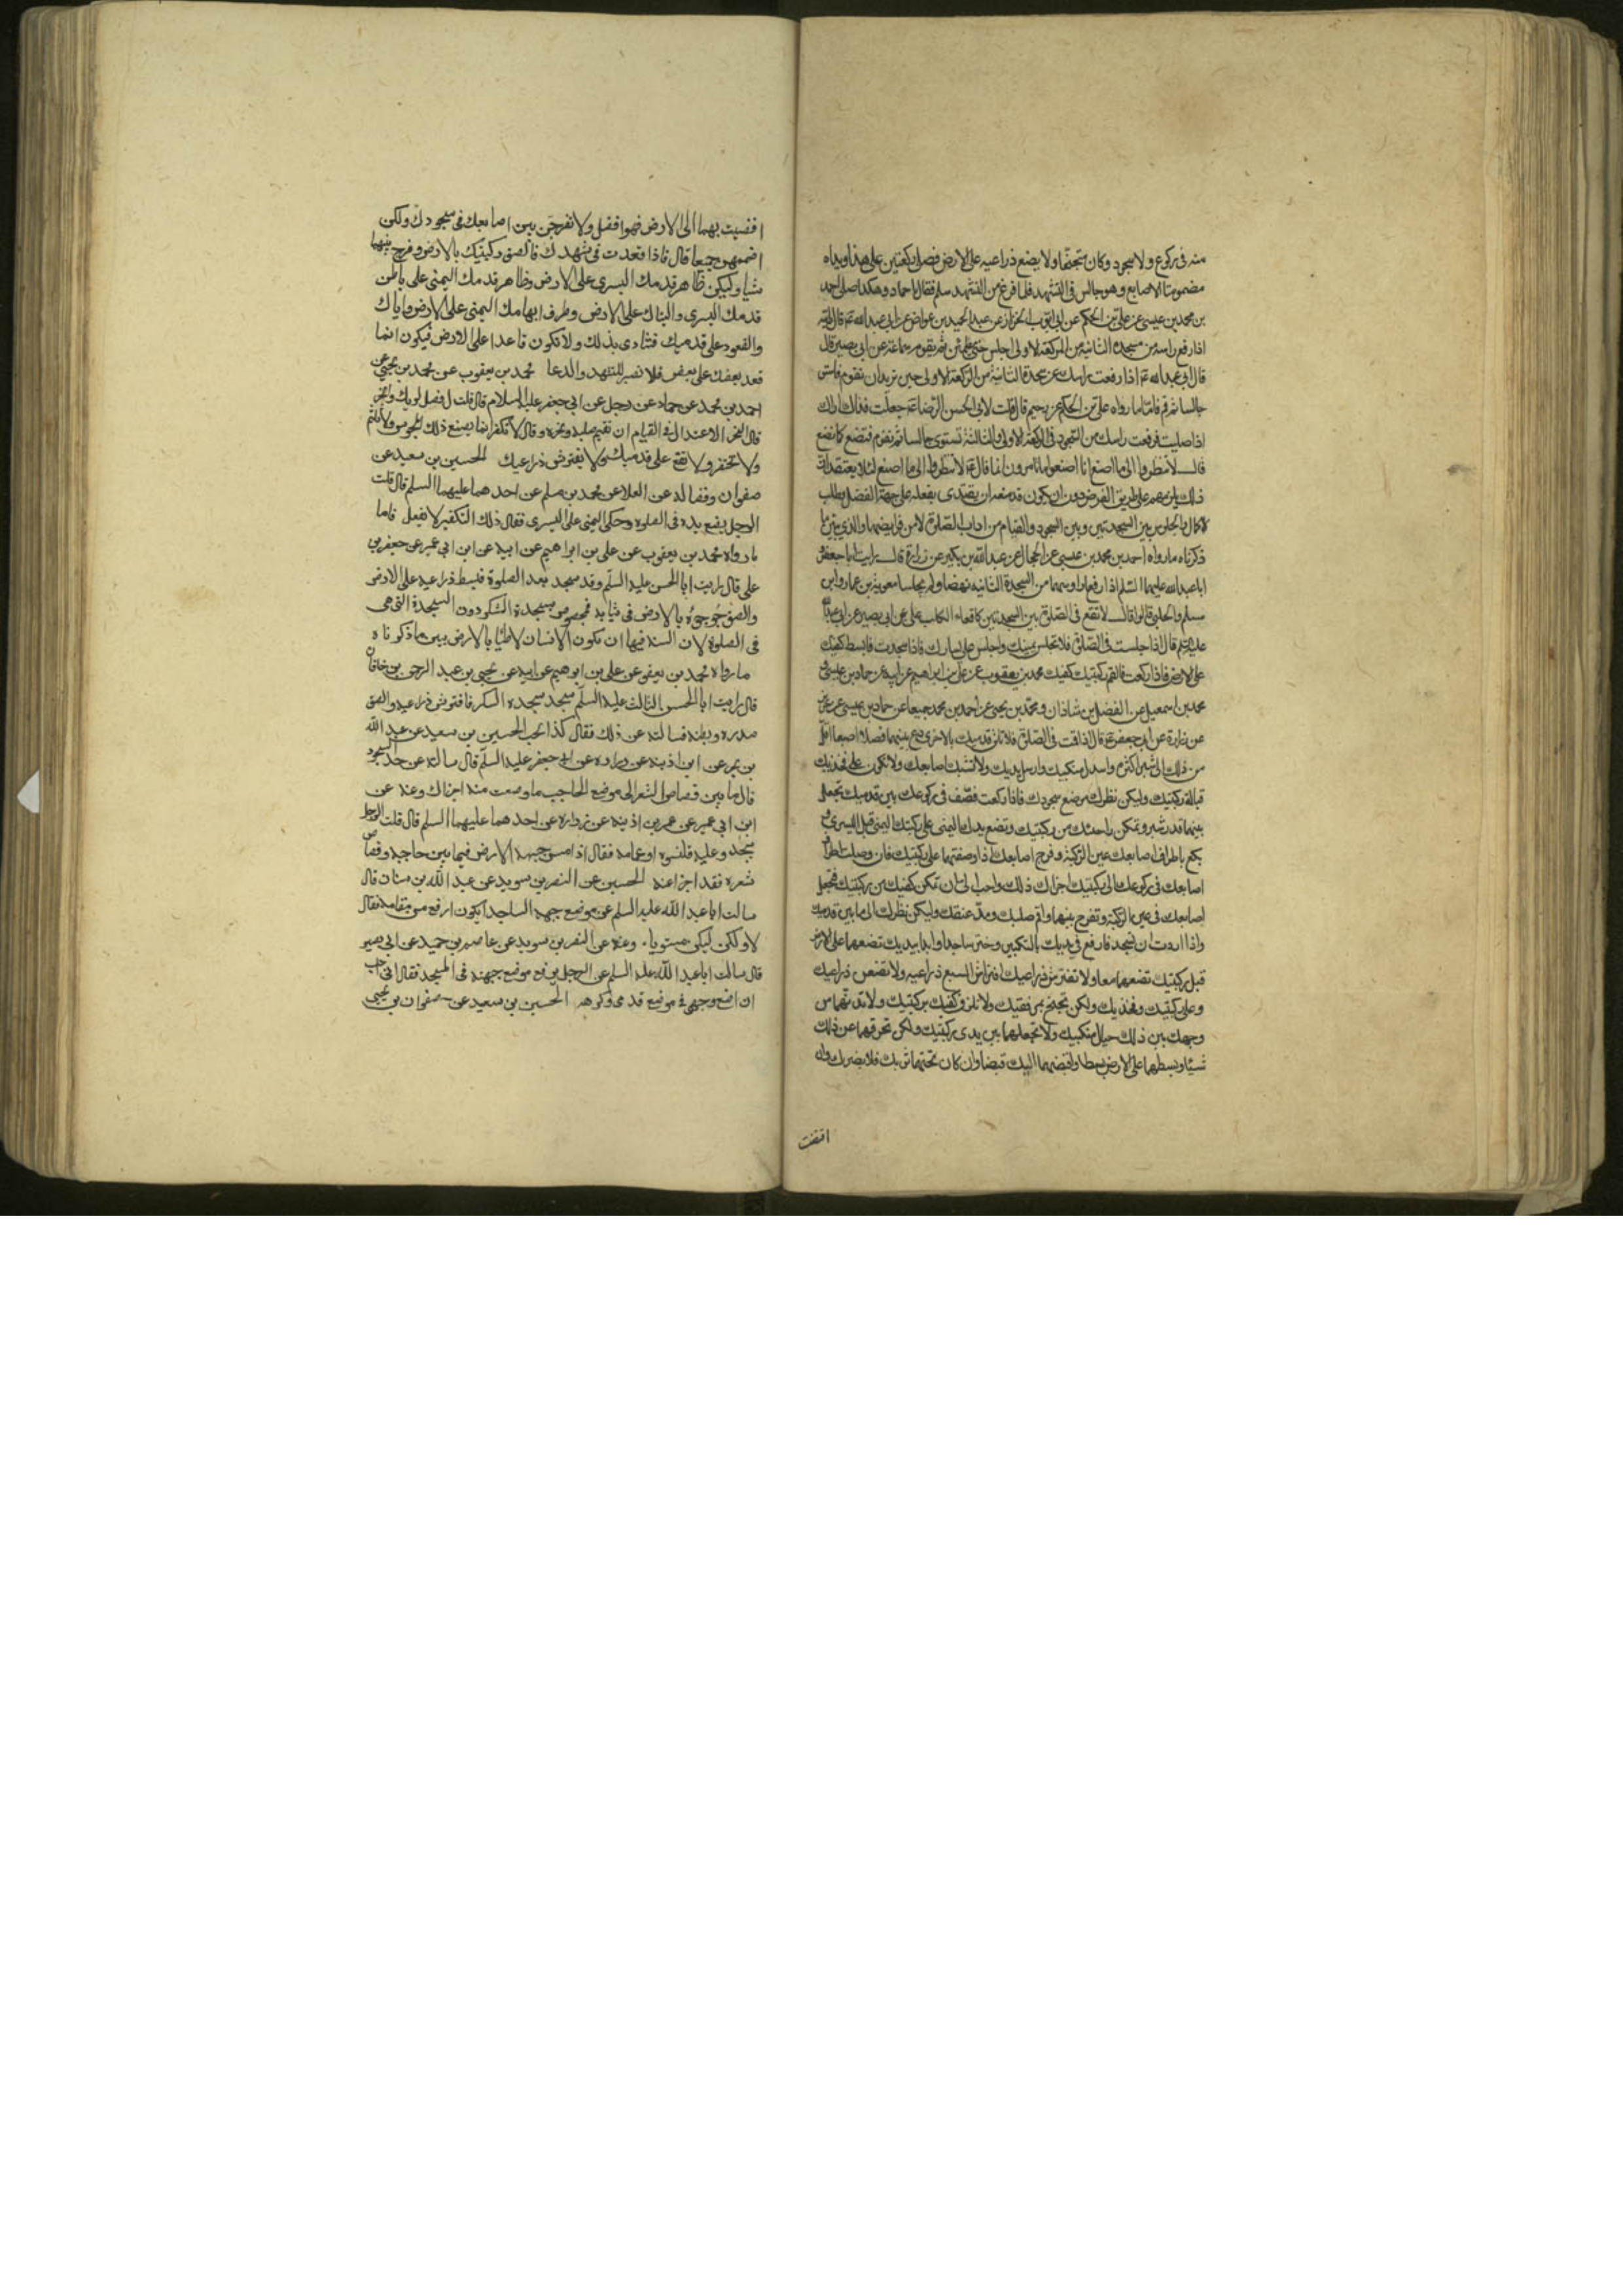 منه فى ركوع ولا سجود وكان متجنحا ولا يضع ذراعيه على الارض فصلى ركعتين على هذا ويداه
مضمومتا الاصابع وهو جالس فى التشهد فلما فرغ من التشهد سلم فقال يا حماد وهكذا صل احمد
بن محمد بن عيسى عن على بن الحكم عن ابى ايوب الخزاز عن عبد الحميد بن عواض عن ابى عبد الله ع قال رايته
اذا رفع راسه من سجدة الثانية من الركعة الاولى جلس حتى يطمئن ثم يقوم سماعة عن ابى بصير قال
قال ابو عبد الله ع اذا رفعت راسك من سجدة الثانية من الركعة الاولى حين تريد ان تقوم فاستو
جالسا ثم قم فاما ما رواه على بن الحكم عن رحيم قال قلت لابى الحسن الرضا ع جعلت فداك اراك
اذا صليت فرفعت راسك من السجود فى الركعة الاولى والثالثة تستوى جالسا ثم تقوم فنصنع كما تصنع
قال لا تنظروا الى ما اصنع انا اصنعوا ما تامرون انما قال ع لا تنظروا الى ما اصنع لئلا يعتقد ان
ذلك يلزمهم على طريق الفرض دون ان يكون قد منعه ان يقتدى بفعله على جهة الفضل يطلب
الكمال والجلوس بين السجدتين وبين السجود والقيام من اداب الصلوة لا من فرايضها والذى يبين ما
ذكرناه ما رواه احمد بن محمد بن عيسى عن الحجال عن عبد الله بن بكير عن زرارة قال رايت ابا جعفر و
ابا عبد الله عليهما السلم اذا رفعا روسهما من السجدة الثانية نهضا ولم يجلسا معوية بن عمار وابن
مسلم والحلبى قالوا قال لا تقع فى الصلوة بين السجدتين كاقعاء الكلب على عن ابى بصير عن ابى عبد الله
عليه السلم قال اذا جلست فى الصلوة فلا تجلس على يمينك واجلس على يسارك فاذا سجدت فابسط كفيك
على الارض فاذا ركعت فالقم ركبتيك كفيك محمد بن يعقوب عن على بن ابراهيم عن ابيه عن حماد بن عيسى و
محمد بن اسمعيل عن الفضل بن شاذان ومحمد بن يحيى عن احمد بن محمد جميعا عن حماد بن عيسى عن حريز
عن زرارة عن ابى جعفر ع قال اذا قمت فى الصلوة فلا تلزق قدميك بالاخرى دع بينهما فصلا اصبعا اقل
من ذلك الى شبر اكثره واسدل منكبيك وارسل يديك ولا تشبك اصابعك ولا تكون على فخذيك
قبالة ركبتيك وليكن نظرك موضع سجودك فاذا ركعت فصف فى ركوعك بين قدميك تجعل
بينهما قدر شبر وتمكن راحتيك من ركبتيك وتضع يدك اليمنى على ركبتك اليمنى قبل اليسرى و
بلغ باطراف اصابعك عين الركبة وفرج اصابعك اذا وضعتها على ركبتيك فان وصلت اطراف
اصابعك فى ركوعك الى ركبتيك اجزاك ذلك واحب الى ان تمكن كفيك من ركبتيك فتجعل
اصابعك فى عين الركبة وتفرج بينها واقم صلبك ومد عنقك وليكن نظرك الى ما بين قدميك
واذا اردت ان تسجد فارفع يديك بالتكبير وخر ساجدا وابدا بيديك تضعهما على الارض
قبل ركبتيك تضعهما معا ولا تفترش ذراعيك افتراش السبع ذراعيه ولا تضعن ذراعيك
وعلى ركبتيك وفخذيك ولكن تجنح بمرفقيك ولا تلزق كفيك بركبتيك ولا تدنهما من
وجهك بين ذلك حيال منكبيك ولا تجعلهما بين يدى ركبتيك ولكن تحرفهما عن ذلك
شيئا وبسطهما على الارض بسطا واقبضهما اليك قبضا وان كان تحتهما ثوبك فلا يضرك وان
افضيت
افضيت بهما الى الارض فهو افضل ولا تفرجن بين اصابعك فى سجودك ولكن
اضممهن جميعا قال فاذا قعدت فى تشهدك فالصق ركبتيك بالارض وفرج بينهما
شيا وليكن ظاهر قدمك اليسرى على الارض وظاهر قدمك اليمنى على باطن
قدمك اليسرى والیتاك على الارض وطرف ابهامك اليمنى على الارض واياك
والقعود على قدميك فتتاذى بذلك ولا تكون قاعدا على الارض فيكون انما
قعد بعضك على بعض فلا تصبر للتشهد والدعا محمد بن يعقوب عن محمد بن يحيى عن
احمد بن محمد عن حماد عن رجل عن ابى جعفر عليه السلام قال قلت له فصل لربك وانحر
قال النحر الاعتدال فى القيام ان تقيم صلبه ونحره وقال لا تكفر انما يصنع ذلك المجوس ولا تلثم
ولا تحتفز ولا تقع على قدميك ولا تفترش ذراعيك الحسين بن سعيد عن
صفوان وفضاله عن العلا عن محمد بن مسلم عن احدهما عليهما السلم قال قلت
الرجل يضع يده فى الصلوة وحكى اليمنى على اليسرى فقال ذلك التكفير لا تفعل فاما
ما رواه محمد بن يعقوب عن على بن ابراهيم عن ابيه عن ابن ابى عمير عن جعفر بن
على قال رايت ابا الحسن عليه السلم وقد سجد بعد الصلوة فبسط ذراعيه على الارض
والصق جؤجؤه بالارض فى ثيابه فمخصوص بسجدة الشكر دون السجدة التى هى
فى الصلوة لان السنة فيها ان يكون الانسان لاطئا بالارض يبين ما ذكرناه
ما رواه محمد بن يعقوب عن على بن ابراهيم عن ابيه عن يحيى بن عبد الرحمن بن خاقان
قال رايت ابا الحسن الثالث عليه السلم سجد سجدة الشكر فافترش ذراعيه والصق
صدره وبطنه فسالته عن ذلك فقال كذا نحب الحسين بن سعيد عن عبد الله
بن بحر عن ابن اذينه عن زراره عن ابى جعفر عليه السلم قال سالته عن حد السجود
قال ما بين قصاص الشعر الى موضع الحاجب ما وضعت منه اجزاك وعنه عن
ابن ابى عمير عن عمر بن اذينه عن زراره عن احدهما عليهما السلم قال قلت الرجل
يسجد وعليه قلنسوه او عمامه فقال اذا مس جبهته الارض فيما بين حاجبه وقصاص
شعره فقد اجزا عنه الحسين عن النضر بن سويد عن عبد الله بن سنان قال
سالت ابا عبد الله عليه السلم عن موضع جبهه الساجد ايكون ارفع من مقامه فقال
لا ولكن ليكن مستويا. وعنه عن النضر بن سويد عن عاصم بن حميد عن ابى بصير
قال سالت ابا عبد الله عليه السلم عن الرجل يرفع موضع جبهته فى المسجد فقال انى احب
ان اضع وجهى فى موضع قدمى وكرهه الحسين بن سعيد عن صفوان بن يحيى